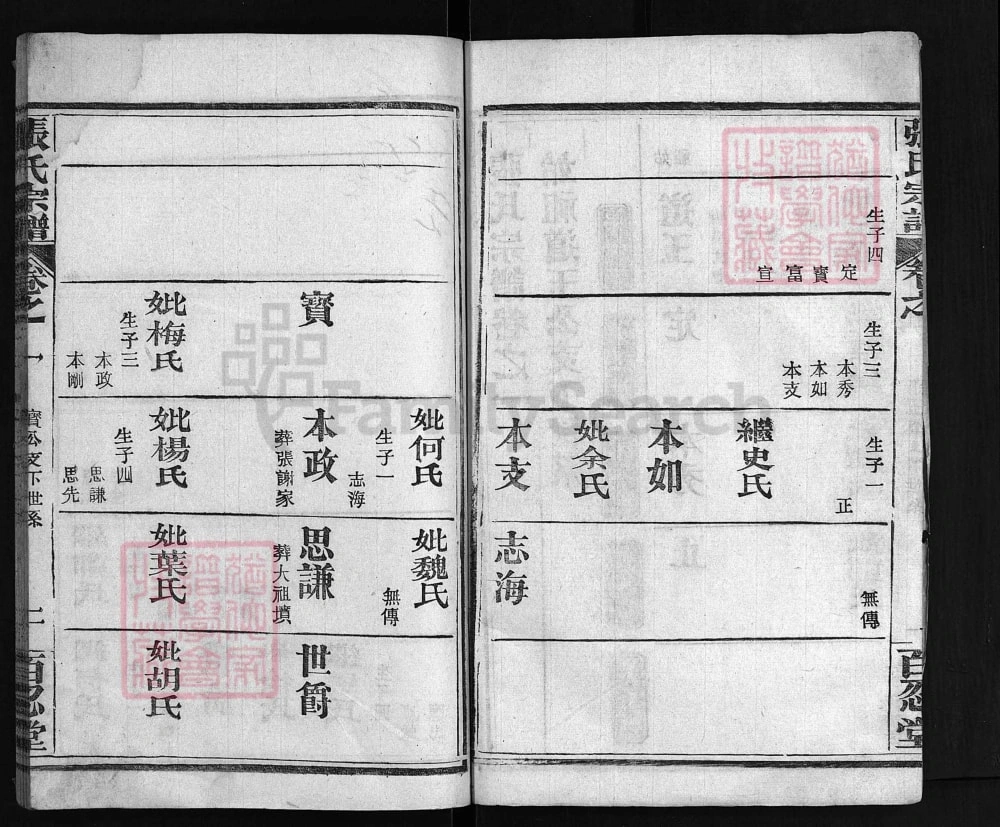 張氏宗譜
卷之一
百忍堂
生子四
定
寶
富
宣
生子三
本秀
本如
本支
生子一
正
繼史氏
本如
妣余氏
本支
無傳
志海
寶
妣梅氏
生子三
本政
本剛
妣何氏
生子一
志海
本政
葬張謝家
妣楊氏
生子四
思謙
思先
妣魏氏
無傳
思謙
葬大祖墳
妣葉氏
世爵
妣胡氏
張氏宗譜
卷之一
寶公支下世系
百忍堂
FamilySearch